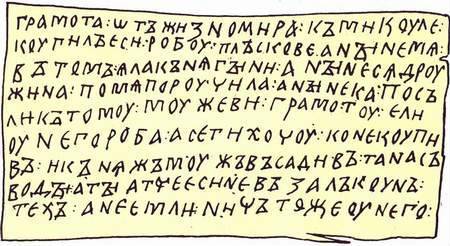 ГРАМОТА : ѠТЪ ЖИЗНОМИРА : КЪ МИКОУЛЕ :
КОУПИЛЪ ЕСИ : РОБОУ : ПЛЪСКОВЕ : А НЪІНЕ МѦ :
ВЪ ТОМЪ : ѦЛА КЪНѦГЪІНИ : А НЪІНЕ СѦ ДРОУ
ЖИНА : ПО МѦ ПОРОУЧИЛА : А НЪІНЕ КА : ПОСЪ
ЛИ КЪ ТОМОУ : МОУЖЕВИ : ГРАМОТОУ : ЕЛИ
ОУ НЕГО РОБА : А СЕ ТИ ХОЧОУ : КОНЕ КОУПИ
ВЪ : И КЪНѦЖЪ МОУЖЪ ВЪСАДИВЪ : ТА НА СЪ
ВОДЪІ : А ТЪІ АТЧЕ ЕСИ НЕ ВЪЗАЛЪ КОУНЪ :
ТЕХЪ : А НЕ ЕМЛИ : НИЧЪТО ЖЕ ОУ НЕГО :